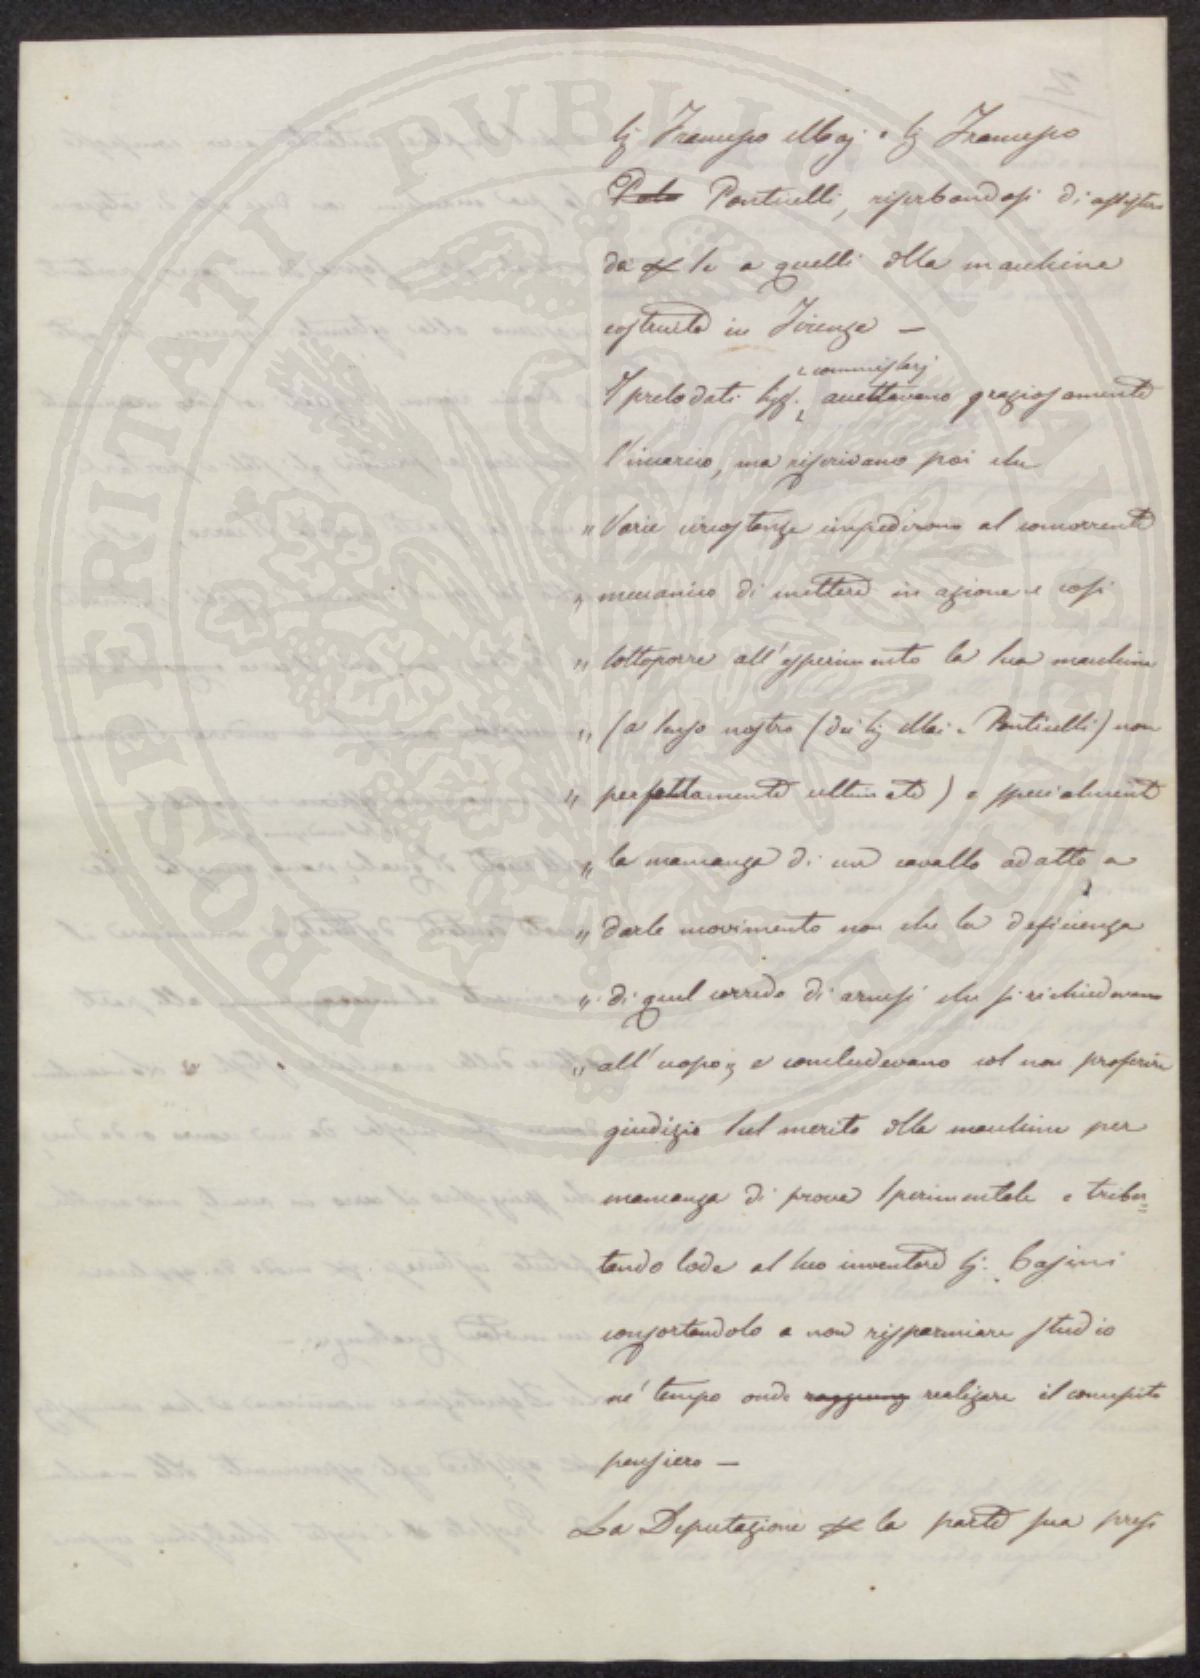 Sig Francesco Maj e Sig Francesco
Polo Ponticelli, riserbandosi di assistere
da per se a quelli della macchina
costruita in Firenze —
commissarj
I prelodati Sigg. accettavano graziosamente
l'incarico, ma riferivano poi che
" Varie circostanze impedirono al concorrente
" meccanico di mettere in azione e così
" sottoporre all'esperimento la sua macchina
" (a senso nostro (dei Sig Mai e Ponticelli) non
" perfettamente ultimata) e specialmente
" la mancanza di un cavallo adatto a
" darle movimento non che la deficienza
" di quel corredo di arnesi che si richiedevano
" all'uopo „ e concludevano col non proferire
giudizio sul merito della macchina per
mancanza di prova sperimentale e tribu=
tando lode al suo inventore Sig. Casini
confortandolo a non risparmiare studio
nè tempo onde raggiung realizzare il concepito
pensiero —
La Deputazione per la parte sua presi
PROSPERITATI PUBLICAE